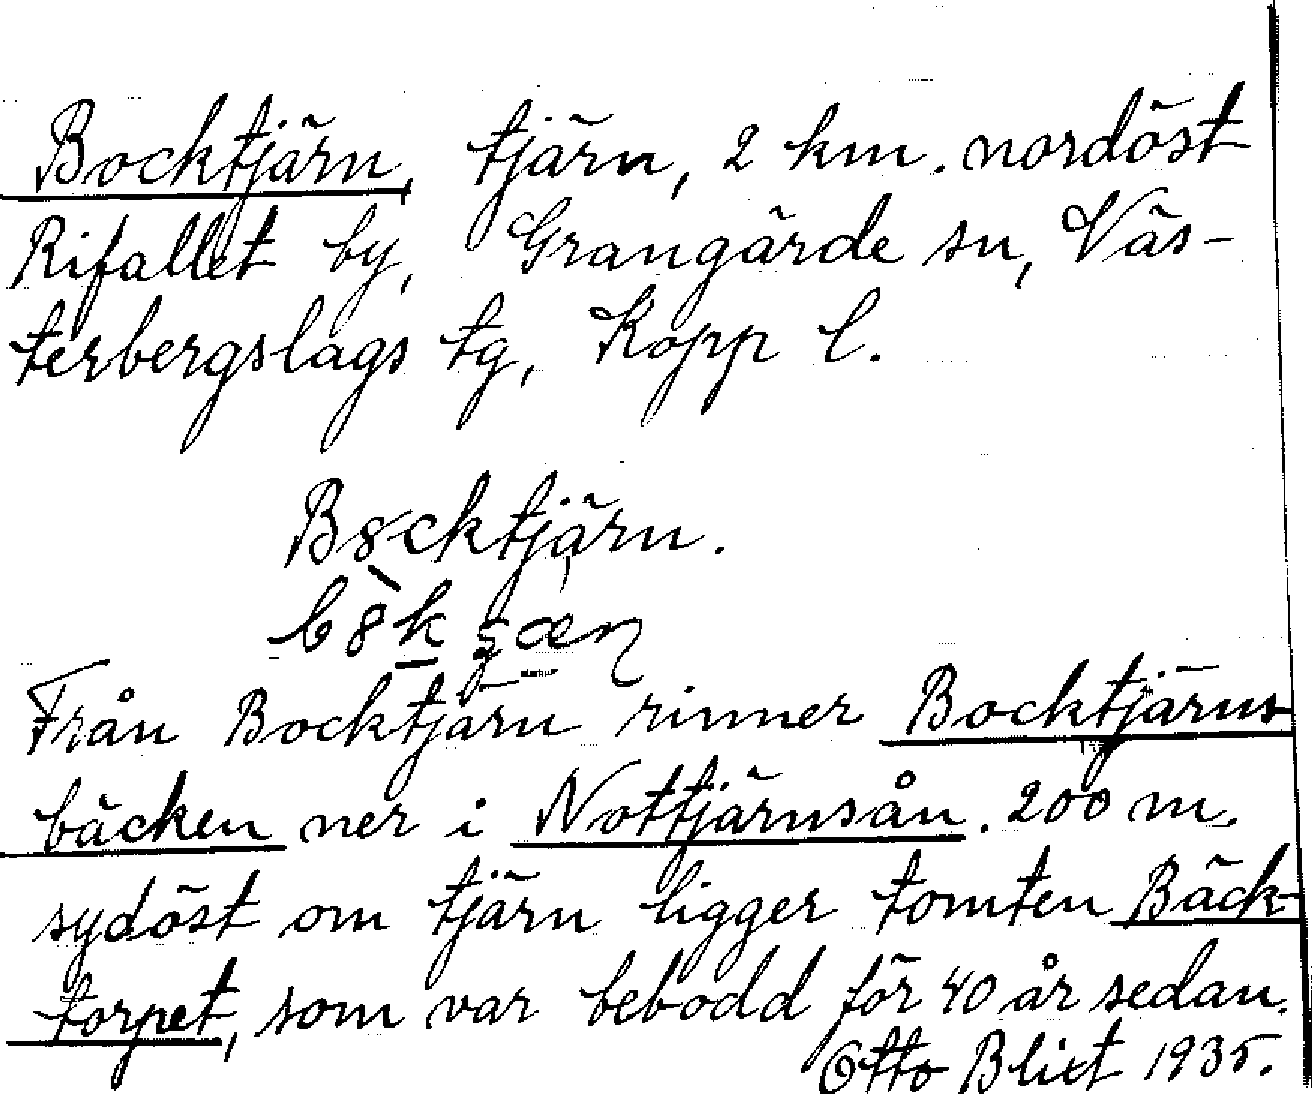 Bocktjärn, tjärn, 2 km. nordöst
Rifallet by, Grangärde sn, Väs-
terbergslags tg, Kopp l.
B8cktjärn.
b8k
Från Bocktjärn rinner Bocktjärns
bäcken ner i Nottjärnsån. 200 m.
sydöst om tjärn ligger tomten Bäck-
torpet, som var bebodd för 40 år sedan.
Otto Blixt 1935.